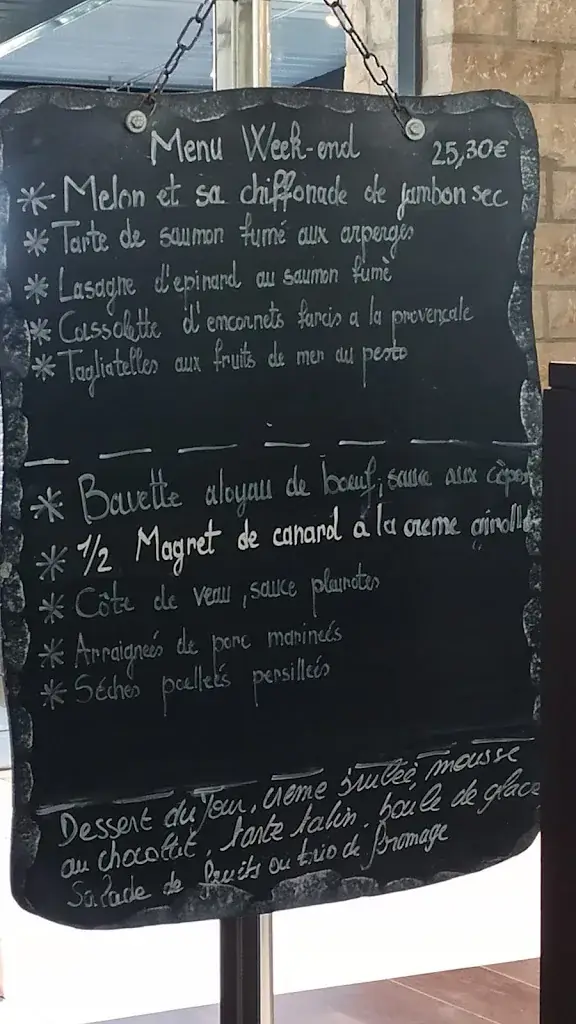 Menu Week-end 25,30€
* Melon et sa chiffonade de jambon sec
* Tarte de saumon fumé aux asperges
* Lasagne d'epinard au saumon fumé
* Cassolette d'encornets farcis a la provencale
* Tagliatelles aux fruits de mer au pesto
* Bavette aloyau de bœuf, sauce aux cèpes
* 1/2 Magret de canard a la creme girolle
* Côte de veau, sauce pleurotes
* Arraigneés de porc marineés
* Séches poelleés persilleés
Dessert du Jour, creme brulée, mousse
au chocolat, tarte tatin, boule de glace
Salade de fruits ou trio de fromage